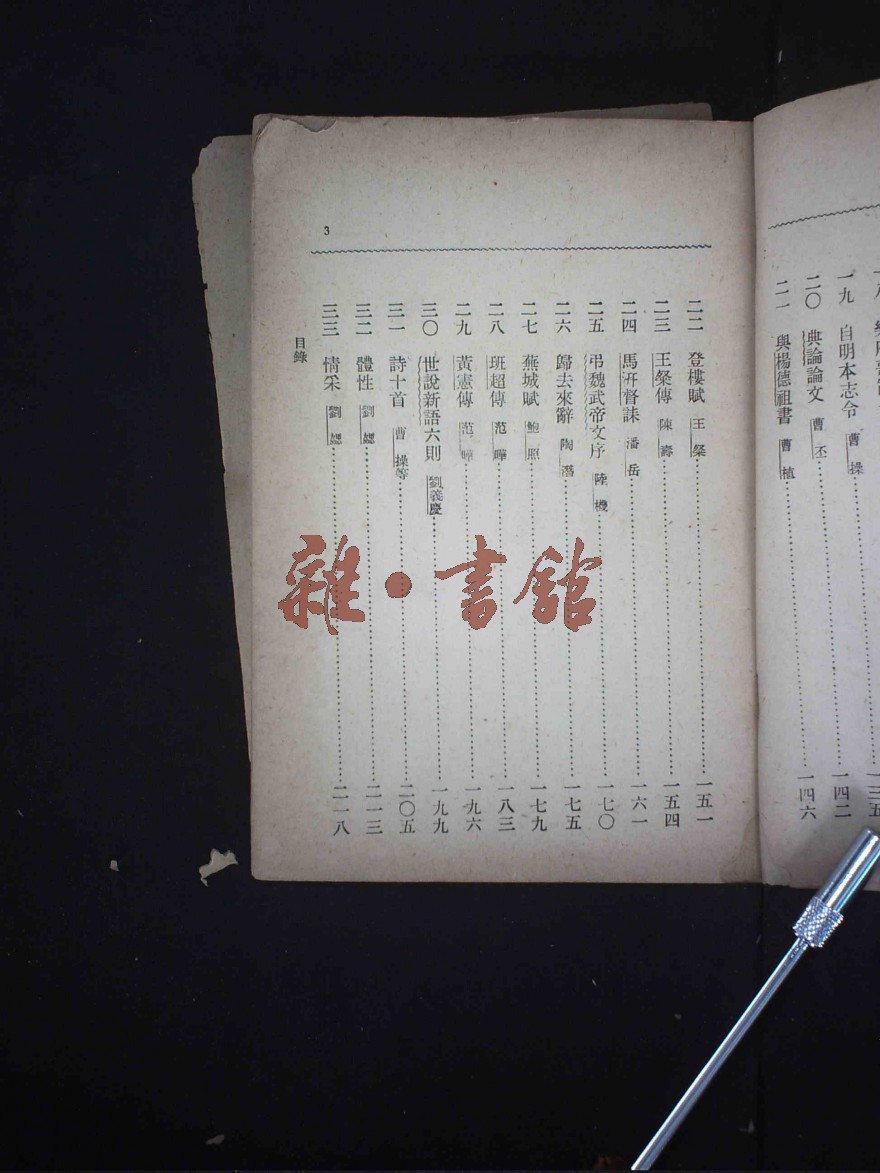 一九 自明本志令 曹操……一四二
二〇 典論論文 曹丕……一四六
二一 與楊德祖書 曹植
二二 登樓賦 王粲……一五一
二三 王粲傳 陳壽……一五四
二四 馬汧督誄 潘岳……一六一
二五 弔魏武帝文序 陸機……一七〇
二六 歸去來辭 陶潛……一七五
二七 蕪城賦 鮑照……一七九
二八 班超傳 范曄……一八三
二九 黃憲傳 范曄……一九六
三〇 世說新語六則 劉義慶……一九九
三一 詩十首 曹操等……二〇五
三二 體性 劉勰……二一三
三三 情采 劉勰……二一八
目錄
3
雜·書館